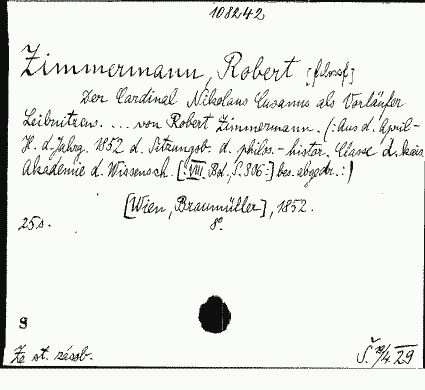 108242
Zimmermann, Robert [filosof]
Der Cardinal Nikolaus Cusanus als Vorläufer
Leibnitzens. ... von Robert Zimmermann. (: Aus d. April-
H. d. Jahrg. 1852 d. Sitzungsb. d. philos.-histor. Classe d. kais.
Akademie d. Wissensch. [: VIII. Bd., S. 306:] bes. abgedr. :)
[Wien, Braumüller], 1852.
25 s. 8°.
8
Ze st. zásob. Š. 29